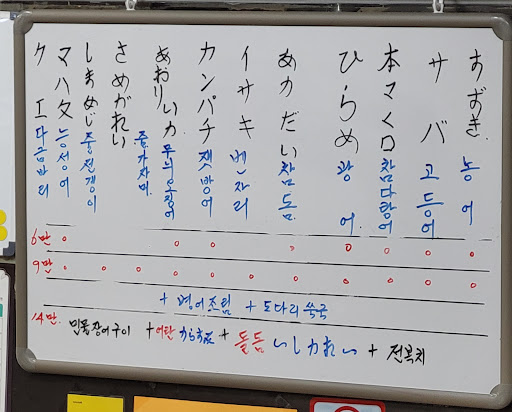 すずき. 농어
サバ 고등어
本マクロ 참다랑어
ひらめ 광어.
あかだい 참돔.
イサキ 벤자리
カンパチ 잿방어
あおりいカ 무늬오징어
さめがれい 줄가자미.
しまあじ 줄전갱이
マハタ 능성어
クエ 다금바리
6만
9만
+ 병어조림 + 도다리쑥국
14만. 민물장어구이 +어란 + 돌돔 いしカれい + 전복치